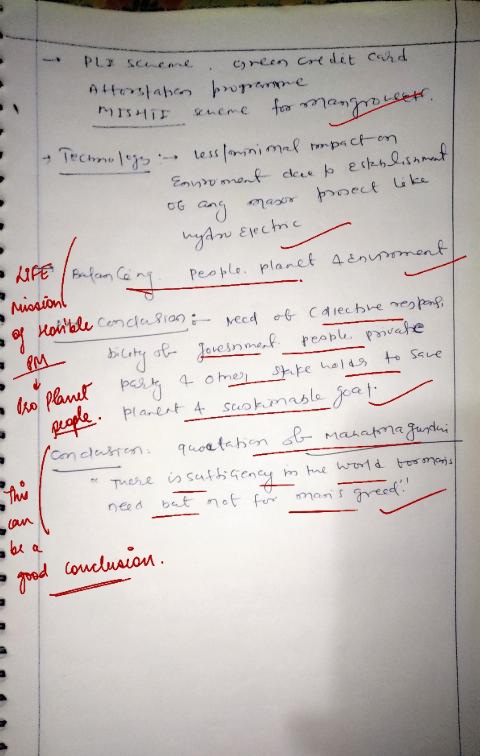 → PLI scheme. Green credit card
Afforstation programme
MISHTI scheme for mangroves.
→ Technology :→ less/minimal impact on
Enviroment due to establishment
of any major project like
hydro Electric
LIFE
Mission
of
PM
↓
Pro Planet
people.
Balancing People. planet & Enviroment
Conclusion :- need of collective responsi
bility of government people private
party & other stake holder to save
planet & sustainable goal.
Conclusion: quotation of Mahatma gandhi
"There is sufficiency in the world for man's
need but not for man's greed"
This
can
be a
good conclusion.